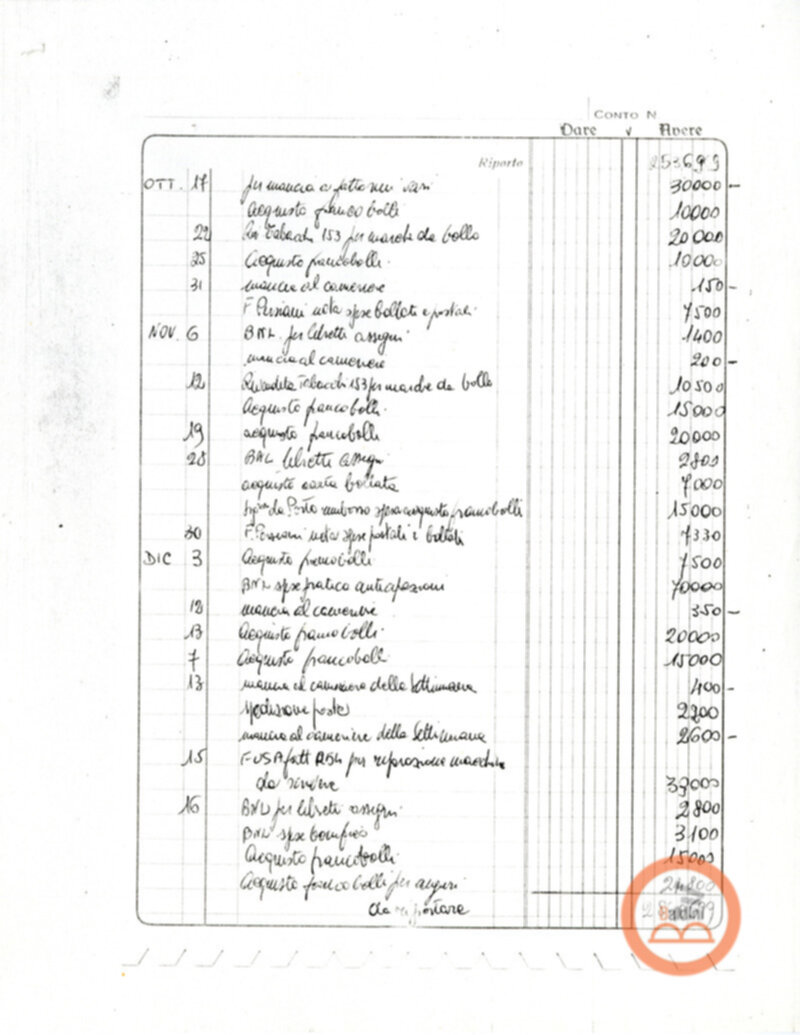 CONTO N
Dare √ Avere
Riporto 253699
OTT. 17 per mancia a fattorini vari 30000 –
Acquisto francobolli 10000
22 Tabacchi 153 per marche da bollo 20000
25 Acquisto francobolli. 10000
31 mancia al cameriere 150 –
F. Persiani nota spese bollati e postali. 7500
NOV. 6 BNL. per libretti assegni 1400
mancia al cameriere 200 –
12 Rivendita Tabacchi 153 per marche da bollo 10500
Acquisto francobolli. 15000
19 acquisto francobolli 20000
28 BNL libretti assegni 2800
acquisto carta bollata 7000
da Posta rimborso spesa acquisto francobolli 15000
30 F. Persiani nota spese postali e bollati 7330
DIC 3 Acquisto francobolli 7500
BNL spese pratica anticipazioni 70000
12 mancia al cameriere 350 –
13 Acquisto francobolli. 20000
7 Acquisto francobolli 15000
13 mancia al cameriere della Settimana 400 –
Spedizione posta 2200
mancia al cameriere della Settimana 2600 –
15 per riparazione macchina
da scrivere 39000
16 BNL per libretti assegni. 2800
BNL spese bonifico 3100
Acquisto francobolli. 15000
Acquisto francobolli per auguri
da riportare